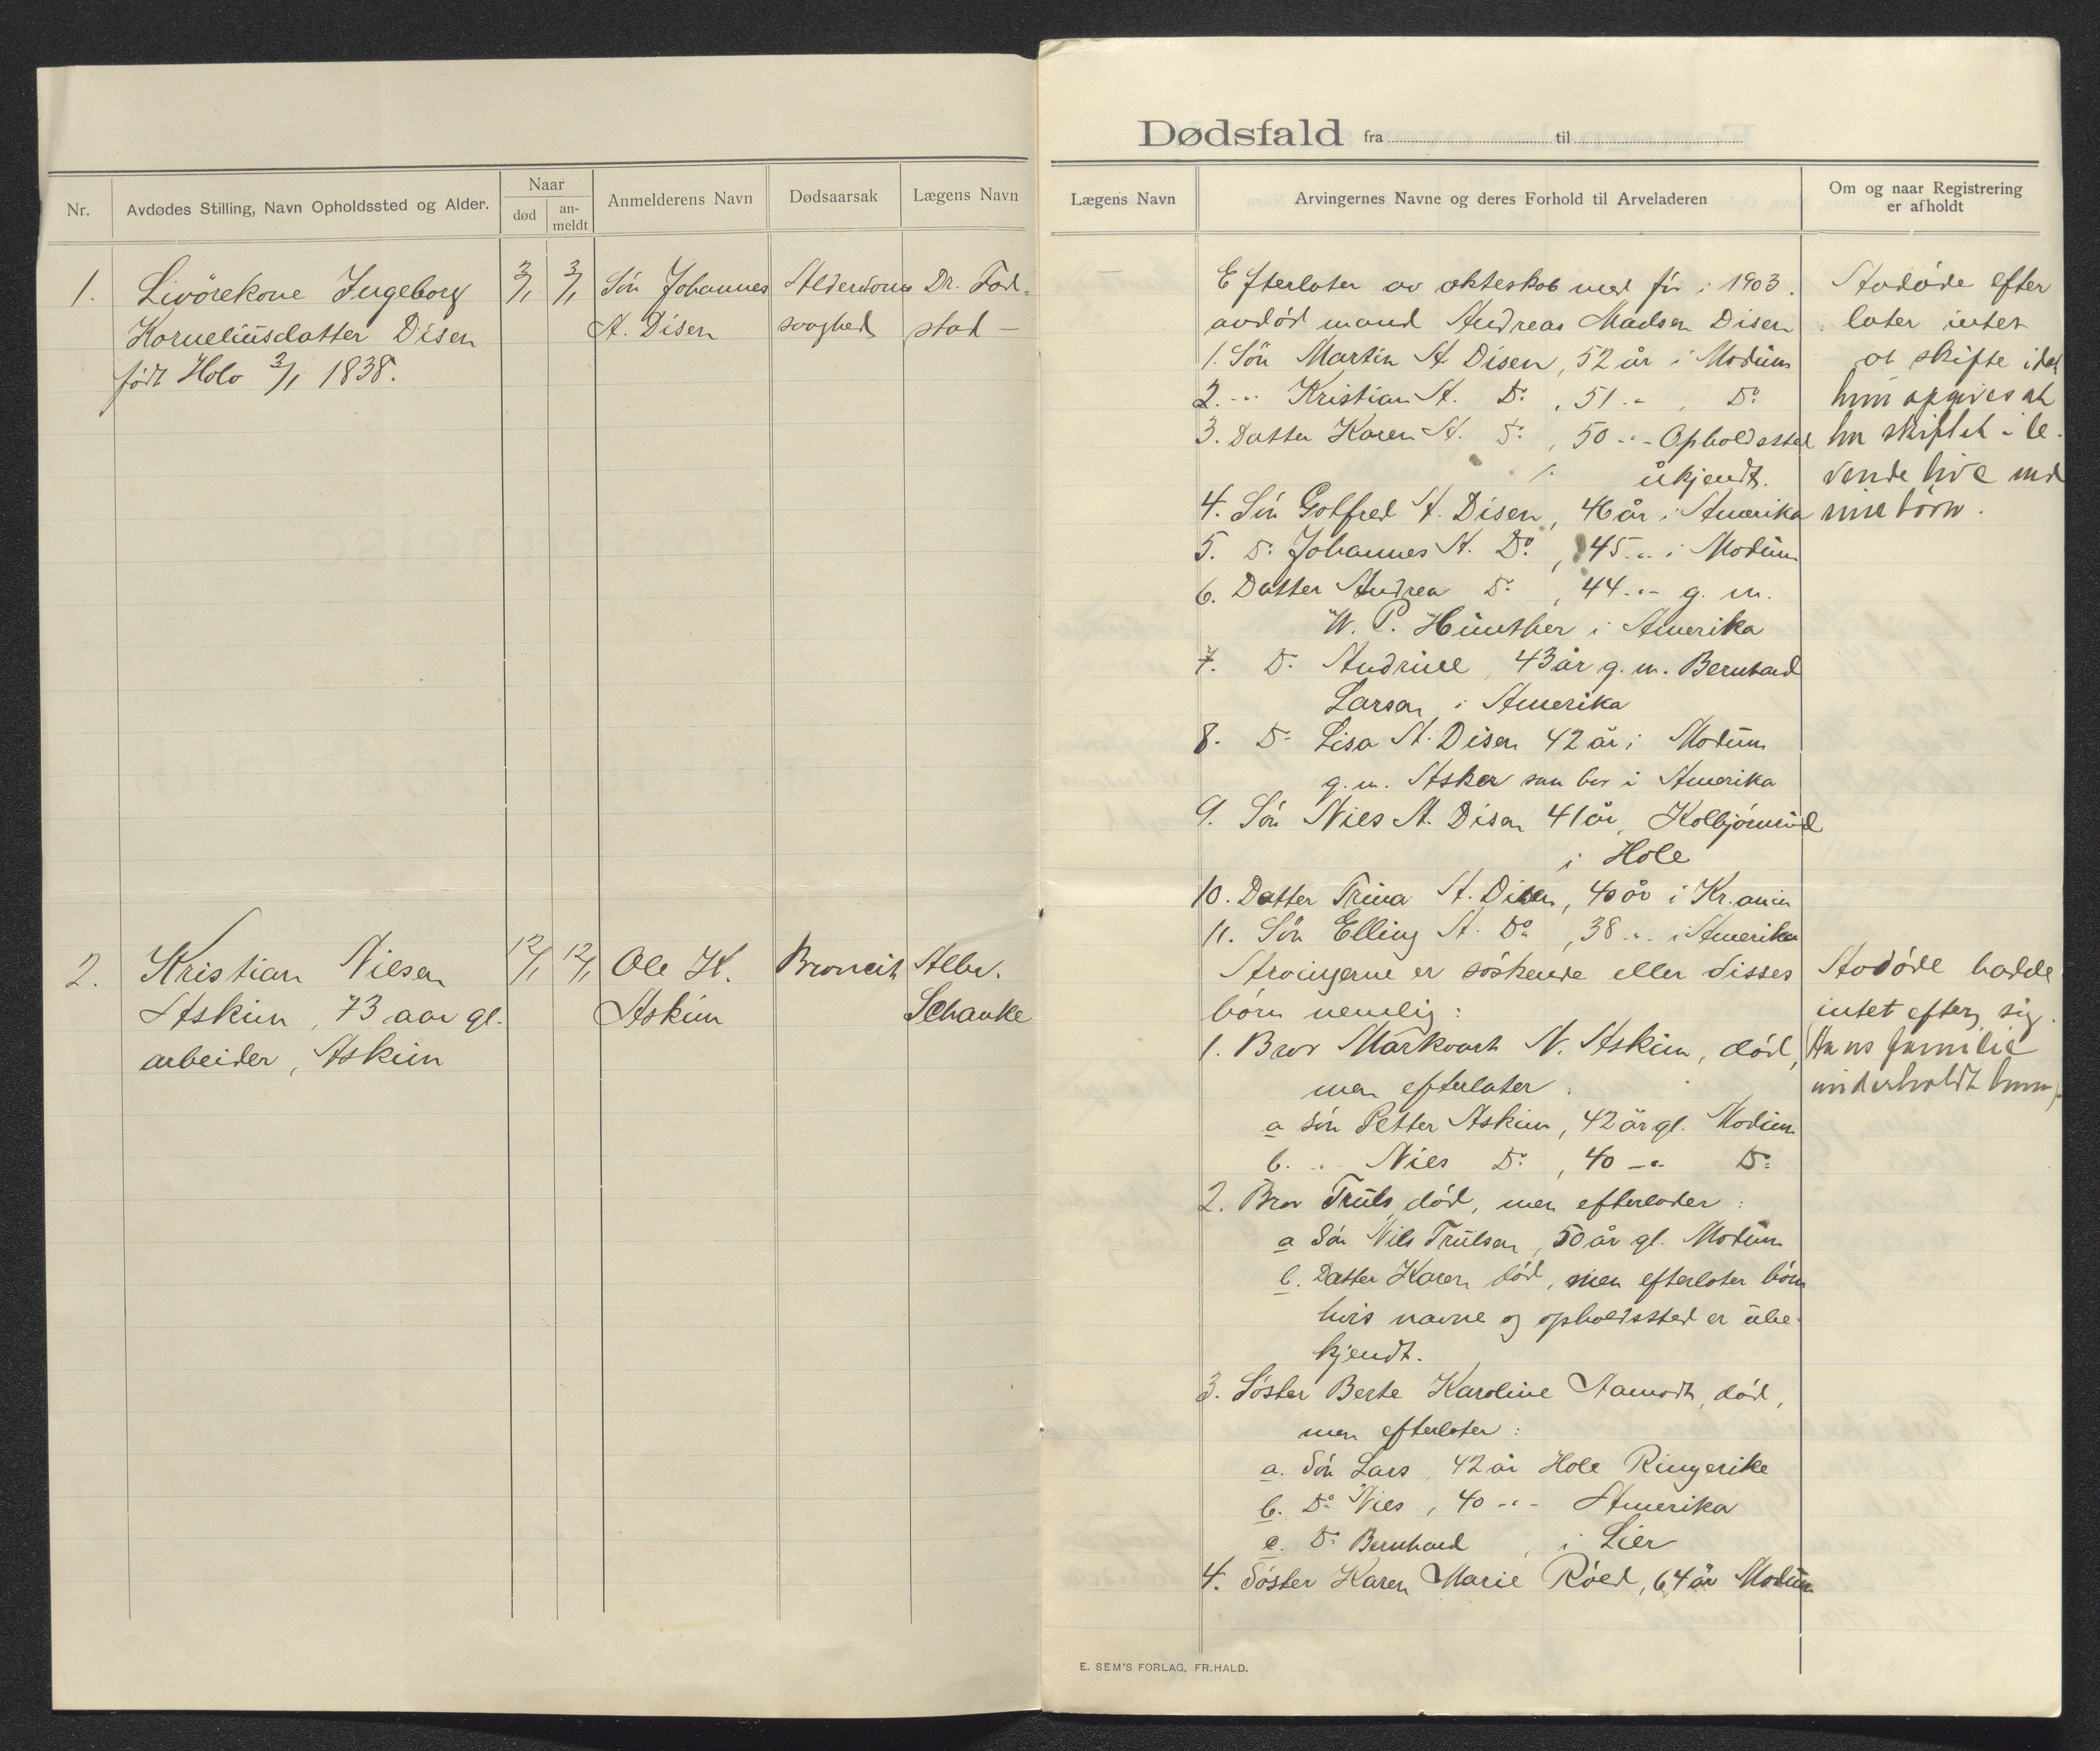 Nr.
Avdødes Stilling, Navn Opholdssted og Alder.
Naar
død
an-
meldt
Anmelderens Navn
Dødsaarsak
Lægens Navn
1.
Livörekone Ingeborg
Korneliusdatter Disen
født Hole 3/1 1838.
3/1
3/1
Sön Johannes
A. Disen
Alderdoms
svaghed
Dr. Fod-
stad —
2.
Kristian Nilsen
Askim, 73 aar gl.
arbeider, Askim
12/1
12/1
Ole K.
Askim
Broncit
Albr.
Schanke
Dødsfald fra til
Lægens Navn
Arvingernes Navne og deres Forhold til Arveladeren
Om og naar Registrering
er afholdt
Efterlater av ekteskab med för i 1903
avdöd mand Andreas Madsen Disen
1. Sön Martin A. Disen, 52 år i Modum
2. -"- Kristian A. Do, 51 -"-, Do
3. Datter Karen A. Do, 50 -"- Opholdssted
ukjendt.
4. Sön Gotfred A. Disen, 46 år i Amerika
5. Do Johannes A. Do, 45 -"- i Modum
6. Datter Andrea Do, 44 -"- g. m.
W. P. Hünther i Amerika
7. Do Andrine, 43 år g. m. Bernhard
Larsen i Amerika
8. Do Lisa A. Disen 42 år i Modum
g. m. Asker som bor i Amerika
9. Sön Niels A. Disen 41 år, Kolbjörnrud
i Hole
10. Datter Trina A. Disen, 40 år i Kr.ania
11. Sön Elling A. Do, 38 -"- i Amerika
Avdöde efter
later intet
at skifte idet
hun opgives at
ha skiftet i le-
vende live med
sine börn.
Arvingerne er söskende eller disses
börn nemlig:
1. Bror Markvart N. Askim, död,
men efterlater:
a Sön Petter Askim, 42 år gl. Modum
b. -"- Niels Do, 40 -"- Do
2. Bror Truls död, men efterlader:
a Sön Nils Trulsen, 50 år gl. Modum
b. Datter Karen död, men efterlater börn
hvis navne og opholdssted er ube-
kjendt.
3. Söster Berte Karoline Aamodt, död,
men efterlater:
a. Sön Lars, 42 år Hole Ringerike
b. Do Niels, 40 -"- Amerika
c. Do Bernhard, i Lier
4. Söster Karen Marie Röed, 64 år Modum
Avdöde hadde
intet efter sig.
Hans familie
underholdt ham
E. SEM'S FORLAG, FR.HALD.